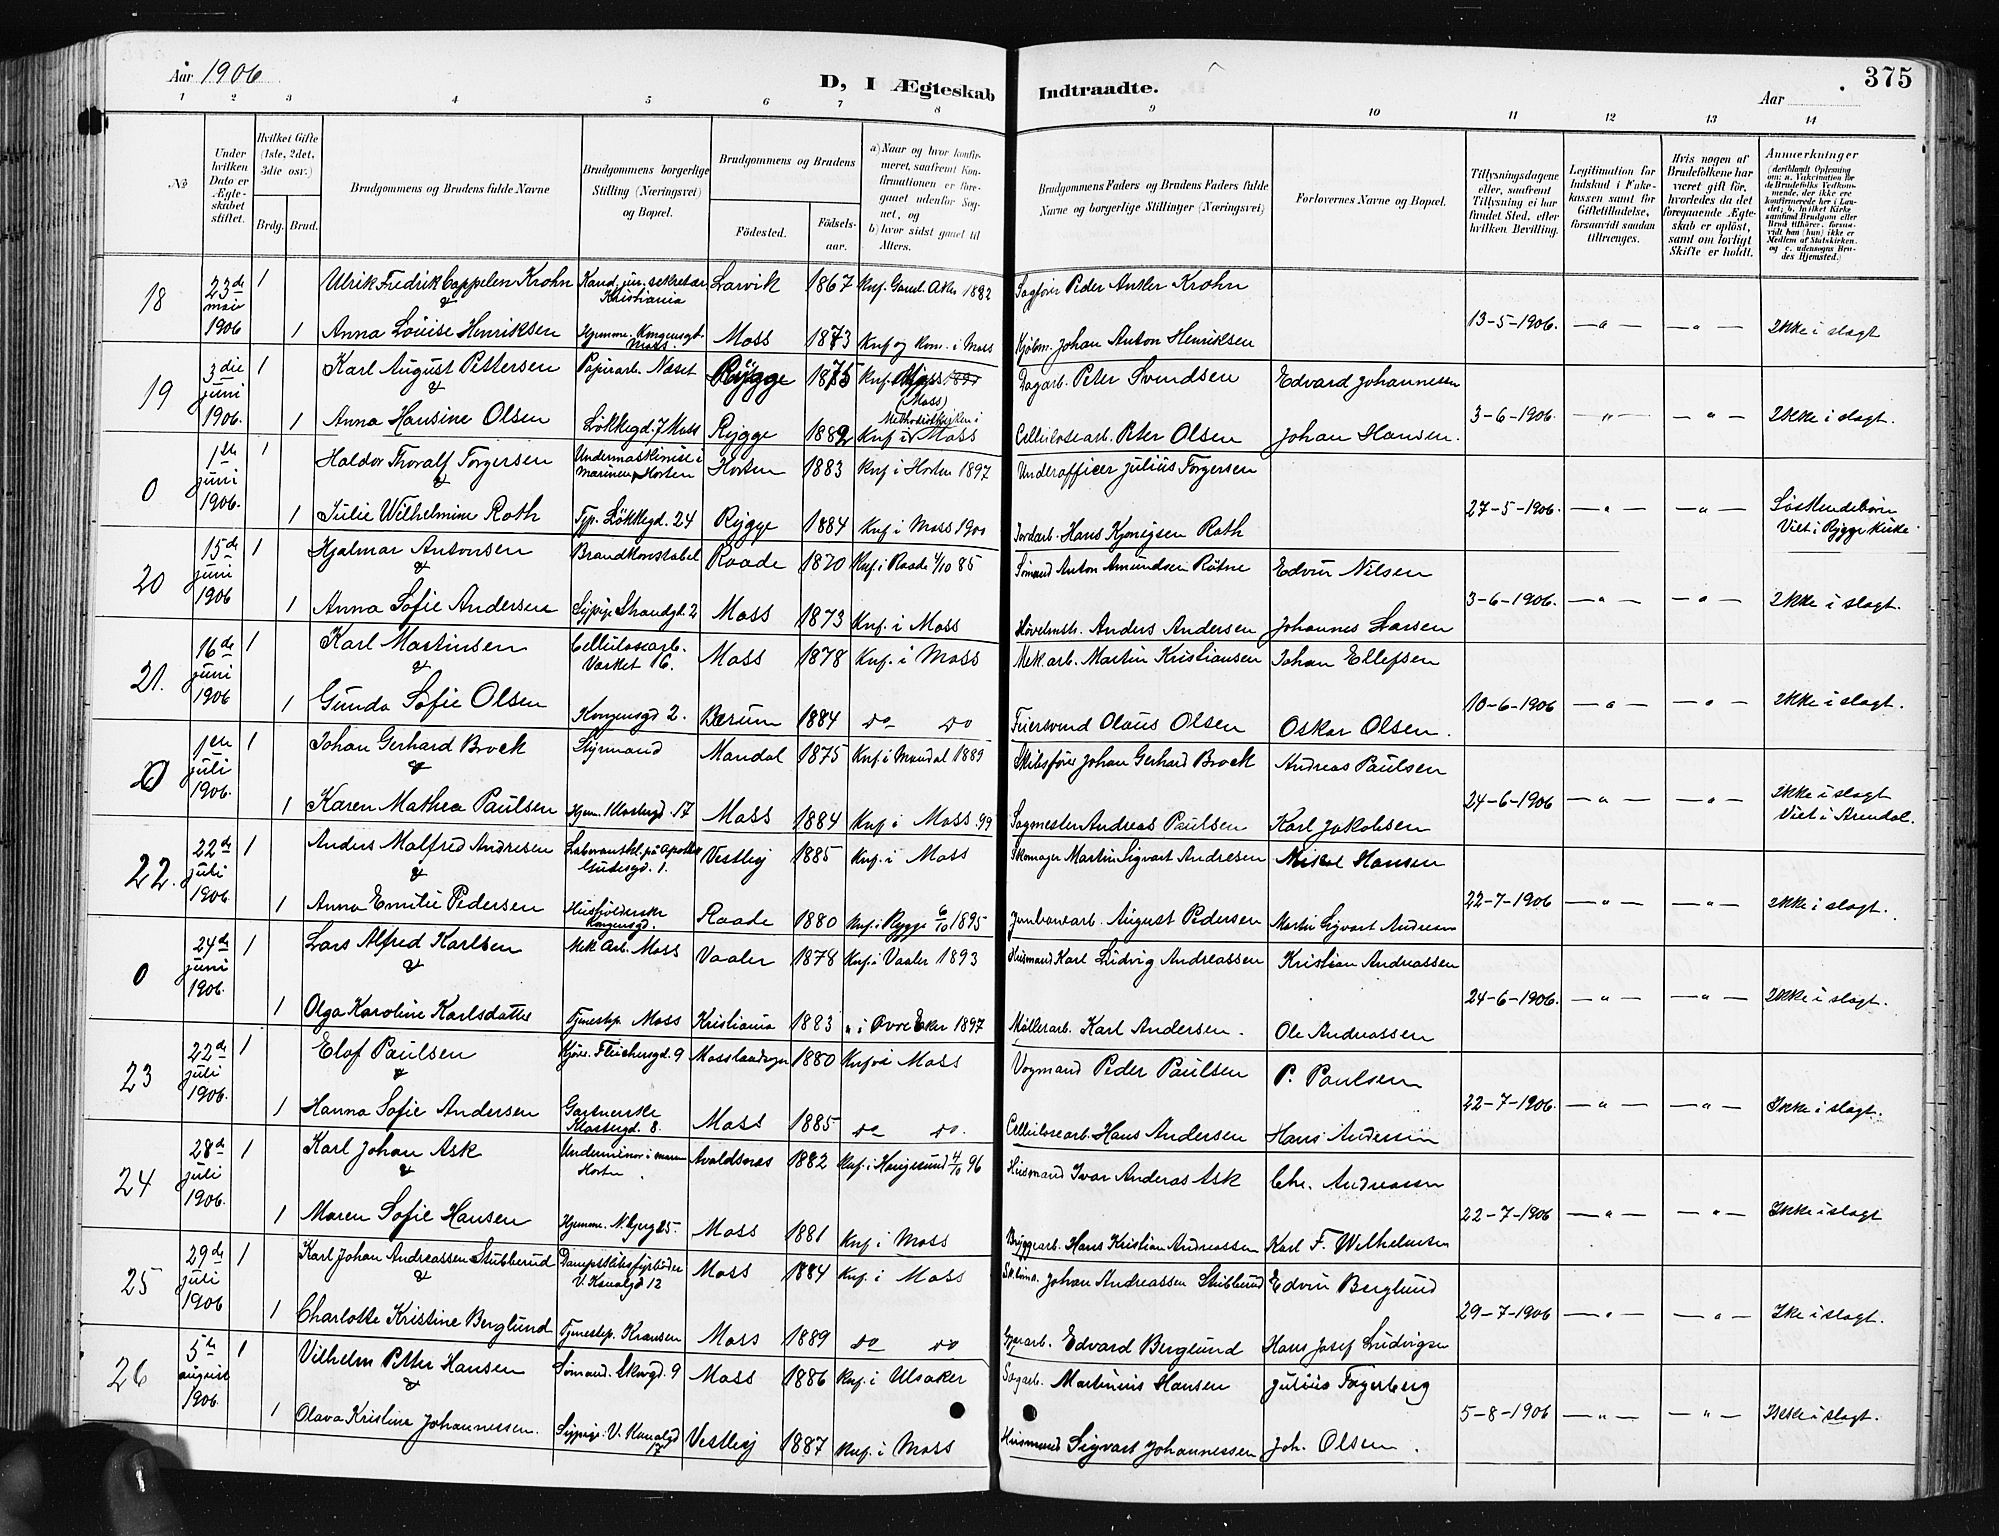 Aar 1906
D, I Ægteskab Indtraadte.
Aar
375
1 2 3 4 5 6 7 8 9 10 11 12 13 14
No
Under hvilken Dato er Ægteskabet stiftet.
Hvilket Gifte (1ste, 2det, 3die osv.)
Brdg. Brud.
Brudgommens og Brudens fulde Navne
Brudgommens borgerlige Stilling (Næringsvei) og Bopæl.
Brudgommens og Brudens
Fødested. Fødselsaar.
a) Naar og hvor konfirmeret, saafremt Konfirmationen er foregaaet udenfor Sognet, og
b) hvor sidst gaaet til Alters.
Brudgommens Faders og Brudens Faders fulde Navne og borgerlige Stillinger (Næringsvei)
Forlovernes Navne og Bopæl.
Tillysningsdagene eller, saafremt Tillysning ei har fundet Sted, efter hvilken Bevilling.
Legitimation for Indskud i Fakekassen samt for Giftetilladelse, forsaavidt saadan tiltrænges.
Hvis nogen af Brudefolkene har været gift før, hvorledes da det foregaaende Ægteskab er opløst, samt om lovligt Skifte er holdt.
Anmærkninger
(deriblandt Oplysning om: a. Vaksination for de Brudefolks Vedkommende, der ikke ere konfirmerede her i Landet; b. hvilket Kirkesamfund Brudgom eller Brud tilhører, forsaavidt han (hun) ikke er Medlem af Statskirken og c. udensogns Brudes Hjemsted.)
18 23de mai 1906 1 Ulrik Fredrik Cappelen Krohn Kand. jur. sekretær Kristiania Larvik 1867 Knf. Gaml. Aker 1882 Sagfører Peder Anker Krohn
&
1 Anna Louise Henriksen Hjemme. Kongensgt. Moss Moss 1873 Knf og Kom. i Moss Kjøbm. Johan Anton Henriksen 13-5-1906. — " — — " — Ikke i slægt
19 3die juni 1906. 1 Karl August Pettersen Papirarb. Næset Rygge 1875 Knf. (Moss) Dagarb. Peter Svendsen Edvard Johannessen
&
1 Anna Hansine Olsen Løkkegd. 7 Moss Rygge 1882 Methodistkirken i Knf i Moss Cellulosearb. Peter Olsen Johan Hansen. 3-6-1906. — " — — " — Ikke i slægt.
0 1ste juni 1906. 1 Haldor Thoralf Torgersen Undermaskinist i marinen, Horten Horten 1883 Knf. i Horten 1897 Underofficer Julius Torgersen
&
1 Julie Wilhelmine Roth Typ. Løkkegd. 24 Rygge 1884 Knf. i Moss 1900 Jordarb. Hans Kjønigsen Roth 27-5-1906. — " — — " — Søskendebørn Viet i Rygge Kirke.
20 15de juni 1906 1 Hjalmar Antonsen Brandkonstabel Raade 1870 Knf. i Raade 4/10 85 Sømand Anton Amundsen Røtne Edvin Nilsen
&
1 Anna Sofie Andersen Sypige Strandgd. 2 Moss 1873 Knf. i Moss Høvelmstr. Anders Andersen Johannes Larsen 3-6-1906. — " — — " — Ikke i slægt.
21. 16de juni 1906 1 Karl Martinsen Cellulosearb. Værket 16. Moss 1878 Knf. i Moss Mek. arb. Martin Kristiansen Johan Ellefsen
&
1 Gunda Sofie Olsen Kongensgd 2. Bærum 1884 do do Feiersvend Olaus Olsen Oskar Olsen. 10-6-1906 — " — — " — Ikke i slægt.
0 1ste juli 1906. 1 Johan Gerhard Brock Styrmand Mandal 1875 Knf. i Mandal 1889 Skibsfører Johan Gerhard Brock Andreas Paulsen
&
1 Karen Mathea Paulsen Hjem. Klostergd. 17 Moss 1884 Knf. i Moss 99 Sagmester Andreas Paulsen Karl Jakobsen 24-6-1906 — " — — " — Ikke i slægt Viet i Arendal.
22. 22de juli 1906 1 Anders Malfred Andresen Vestby 1885 Knf. i Moss Skomager Martin Sigvart Andresen Hansen
&
1 Anna Emilie Pedersen Husholderske Kongensgd. Raade 1880 Knf. i Rygge 6/10 1895 Jernbanearb. August Pedersen Martin Sigvart Andresen 22-7-1906 — " — — " — Ikke i slægt.
0 24de juni 1906. 1 Lars Alfred Karlsen Mek Arb. Moss Vaaler 1878 Knf. i Vaaler 1893 Husmand Karl Ludvig Andreassen Kristian Andreassen
&
1 Olga Karoline Karlsdatter Tjenestep. Moss Kristiania 1883 " i Øvre Eker 1897 Møllerarb. Karl Andersen. Ole Andreassen 24-6-1906. — " — — " — Ikke i slægt.
23 22de juli 1906. 1 Elof Paulsen Kjører. Fleichersgd. 9 Mosslandsogn 1880 Knf i Moss Vogmand Peder Paulsen P. Paulsen
&
1 Hanna Sofie Andersen Gartnerske Klostergd. 8. Moss 1885 do do. Cellulosearb. Hans Andersen Hans Andersen 22-7-1906. — " — — " — Ikke i slægt.
24 28de juli 1906. 1 Karl Johan Ask Underminør i marin Horten Avaldsnæs 1882 Knf. i Haugesund 4/10 96 Husmand Ivar Andreas Ask Chr. Andreassen
&
1 Maren Sofie Hansen Hjemme. N. bjerg 25. Moss 1881 Knf. i Moss Bryggearb. Hans Kristian Andreassen Karl F. Wilhelmsen 22-7-1906 — " — — " — Ikke i slægt
25 29de juli 1906 1 Karl Johan Andreassen Stubberud Dampskibsfyrbøder V. Kanalgd 12 Moss 1884 Knf. i Moss Johan Andreassen Stubberud Edvin Berglund
&
1 Charlotte Kristine Berglund Tjenestep. Kransen Moss 1889 do do Edvard Berglund Hans Josef Ludvigsen 29-7-1906 — " — — " — Ikke i slægt.
26 5te august 1906 1 Vilhelm Petter Hansen Sømand. Skovgd. 9 Moss 1886 Knf. i Ulsaker Sagarb. Martinius Hansen Julius Fagerberg
&
1 Olava Kristine Johannessen. Sypige. V. Kanalgd 17 Vestby 1887 Knf. i Moss Husmand Sigvart Johannessen Joh. Olsen. 5-8-1906 — " — — " — Ikke i slægt.